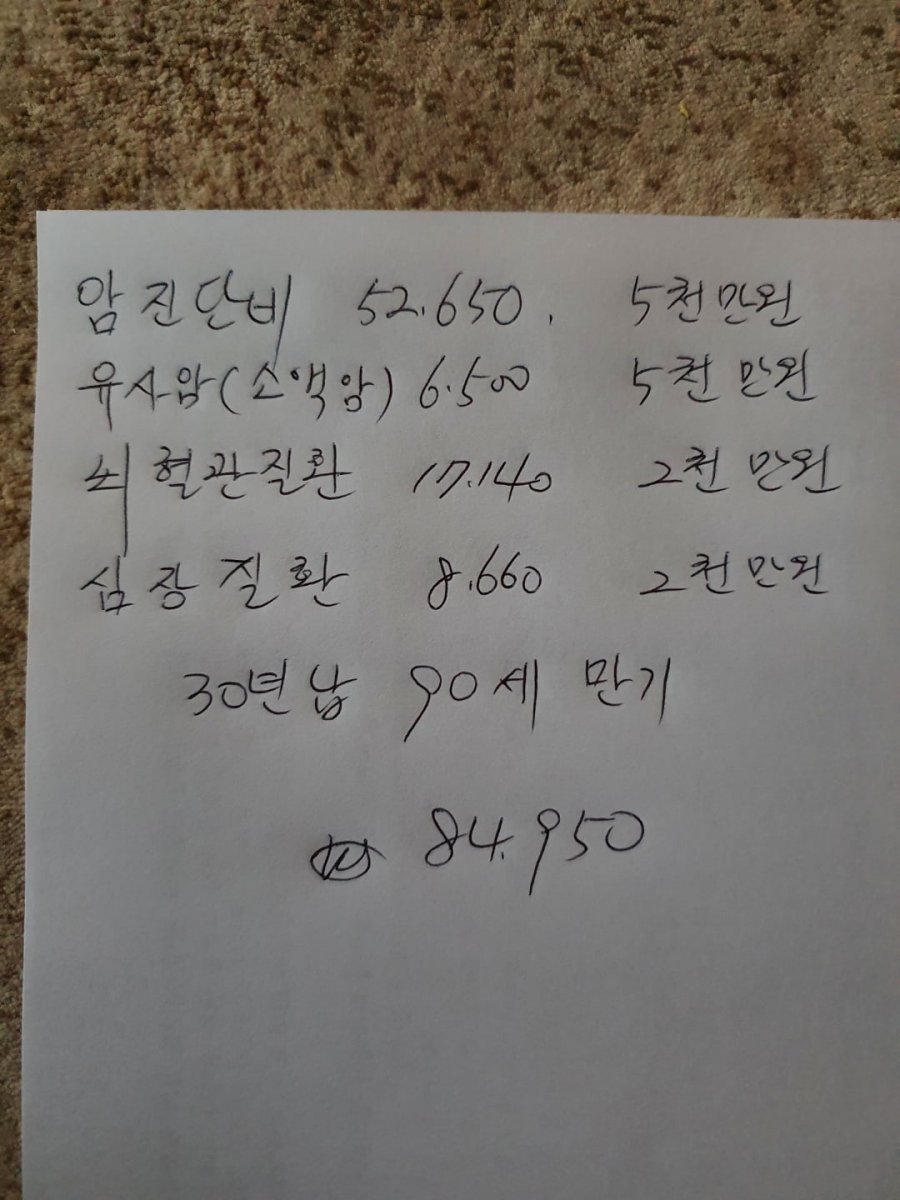 암진단비 52.650. 5천만원
유사암(소액암) 6.500 5천만원
뇌혈관질환 17.140 2천만원
심장질환 8.660 2천만원
30년납 90세 만기
84.950